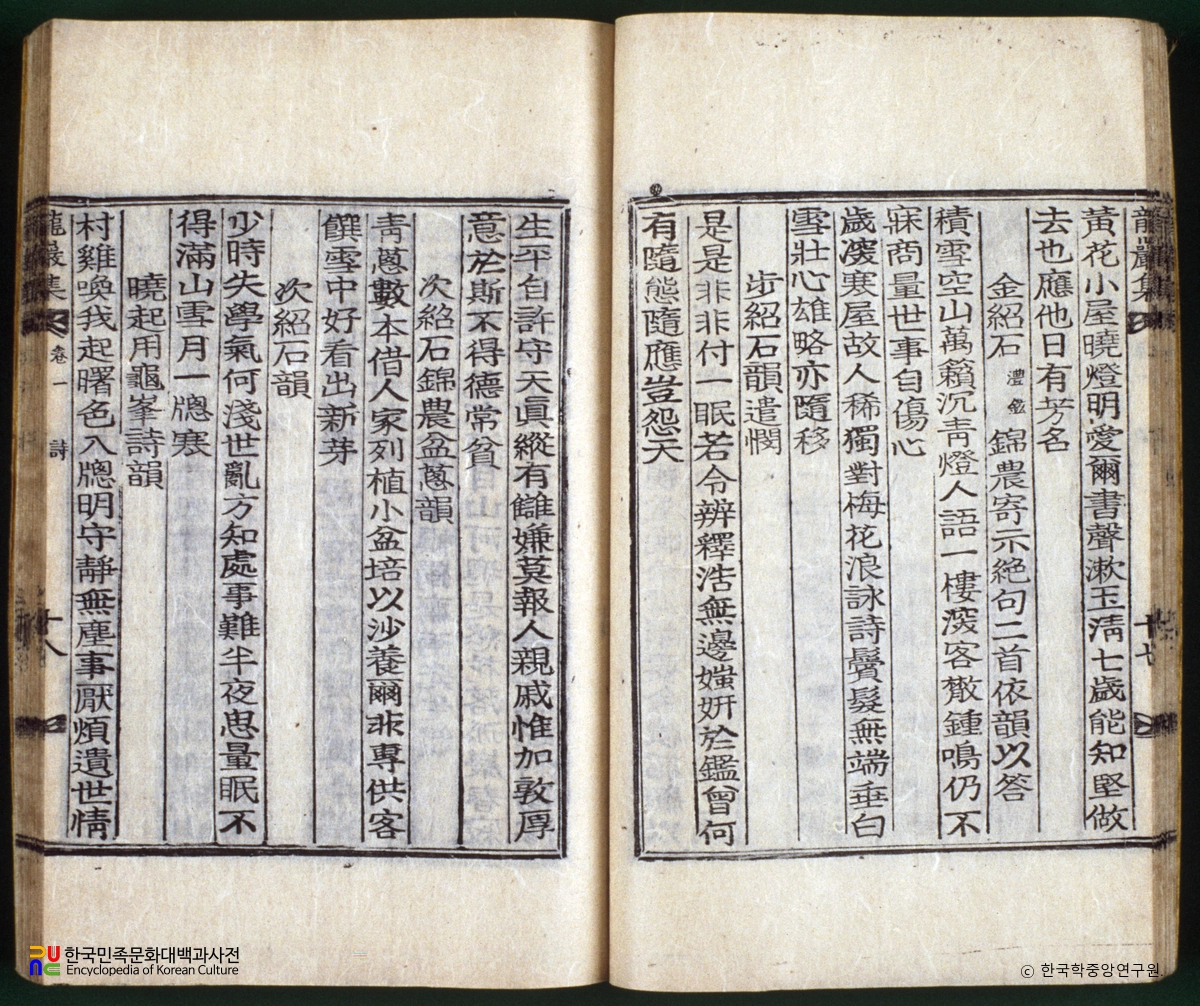 龍巖集
十七
黃花小屋曉燈明愛爾書聲漱玉淸七歲能知堅做
去也應他日有芳名
金紹石 澧鑑 錦農寄示絶句二首依韻以答
積雪空山萬籟沉靑燈人語一樓深客散鍾鳴仍不
寐商量世事自傷心
歲深寒屋故人稀獨對梅花浪詠詩鬢髮無端垂白
雪壯心雄略亦隨移
步紹石韻遣憫
是是非非付一眠若令辨釋浩無邊媸姸於鑑曾何
有隨態隨應豈怨天
生平自許守天眞縱有讎嫌莫報人親戚惟加敦厚
意於斯不得德常貧
次紹石錦農盆蔥韻
靑蔥數本借人家列植小盆培以沙養爾非專供客
饌雪中好看出新芽
次紹石韻
少時失學氣何淺世亂方知處事難半夜思量眠不
得滿山雪月一牕寒
曉起用龜峯詩韻
村雞喚我起曙色入牕明守靜無塵事厭煩遺世情
龍巖集 卷一 詩 十八
한국민족문화대백과사전
Encyclopedia of Korean Culture
© 한국학중앙연구원